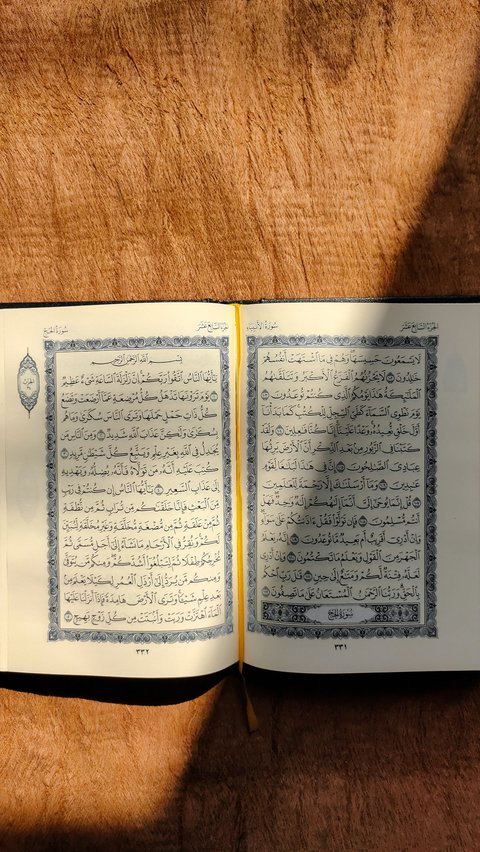 الجزء السابع عشر
سورة الأنبياء
لَا يَسْمَعُونَ حَسِيسَهَا وَهُمْ فِي مَا اشْتَهَتْ أَنفُسُهُمْ
خَٰلِدُونَ ١٠٢ لَا يَحْزُنُهُمُ الْفَزَعُ الْأَكْبَرُ وَتَتَلَقَّىٰهُمُ
الْمَلَٰٓئِكَةُ هَٰذَا يَوْمُكُمُ الَّذِي كُنتُمْ تُوعَدُونَ ١٠٣
يَوْمَ نَطْوِي السَّمَآءَ كَطَيِّ السِّجِلِّ لِلْكُتُبِ كَمَا بَدَأْنَآ
أَوَّلَ خَلْقٍ نُّعِيدُهُۥ وَعْدًا عَلَيْنَآ إِنَّا كُنَّا فَٰعِلِينَ ١٠٤ وَلَقَدْ
كَتَبْنَا فِي الزَّبُورِ مِنۢ بَعْدِ الذِّكْرِ أَنَّ الْأَرْضَ يَرِثُهَا
عِبَادِيَ الصَّٰلِحُونَ ١٠٥ إِنَّ فِي هَٰذَا لَبَلَٰغًا لِّقَوْمٍ
عَٰبِدِينَ ١٠٦ وَمَآ أَرْسَلْنَٰكَ إِلَّا رَحْمَةً لِّلْعَٰلَمِينَ
١٠٧ قُلْ إِنَّمَا يُوحَىٰٓ إِلَيَّ أَنَّمَآ إِلَٰهُكُمْ إِلَٰهٌ وَٰحِدٌ فَهَلْ
أَنتُم مُّسْلِمُونَ ١٠٨ فَإِن تَوَلَّوْا فَقُلْ ءَاذَنتُكُمْ عَلَىٰ سَوَآءٍ
وَإِنْ أَدْرِيٓ أَقَرِيبٌ أَم بَعِيدٌ مَّا تُوعَدُونَ ١٠٩ إِنَّهُۥ يَعْلَمُ
الْجَهْرَ مِنَ الْقَوْلِ وَيَعْلَمُ مَا تَكْتُمُونَ ١١٠ وَإِنْ أَدْرِي
لَعَلَّهُۥ فِتْنَةٌ لَّكُمْ وَمَتَٰعٌ إِلَىٰ حِينٍ ١١١ قَٰلَ رَبِّ احْكُم
بِالْحَقِّ وَرَبُّنَا الرَّحْمَٰنُ الْمُسْتَعَانُ عَلَىٰ مَا تَصِفُونَ ١١٢
سورة الحج
٣٣١
الجزء السابع عشر
سورة الحج
بِسْمِ اللَّهِ الرَّحْمَٰنِ الرَّحِيمِ
يَٰٓأَيُّهَا النَّاسُ اتَّقُوا رَبَّكُمْ إِنَّ زَلْزَلَةَ السَّاعَةِ شَيْءٌ عَظِيمٌ
١ يَوْمَ تَرَوْنَهَا تَذْهَلُ كُلُّ مُرْضِعَةٍ عَمَّآ أَرْضَعَتْ وَتَضَعُ
كُلُّ ذَاتِ حَمْلٍ حَمْلَهَا وَتَرَى النَّاسَ سُكَٰرَىٰ وَمَا هُم
بِسُكَٰرَىٰ وَلَٰكِنَّ عَذَابَ اللَّهِ شَدِيدٌ ٢ وَمِنَ النَّاسِ مَن
يُجَٰدِلُ فِي اللَّهِ بِغَيْرِ عِلْمٍ وَيَتَّبِعُ كُلَّ شَيْطَٰنٍ مَّرِيدٍ ٣
كُتِبَ عَلَيْهِ أَنَّهُۥ مَن تَوَلَّاهُ فَأَنَّهُۥ يُضِلُّهُۥ وَيَهْدِيهِ
إِلَىٰ عَذَابِ السَّعِيرِ ٤ يَٰٓأَيُّهَا النَّاسُ إِن كُنتُمْ فِي رَيْبٍ
مِّنَ الْبَعْثِ فَإِنَّا خَلَقْنَٰكُم مِّن تُرَابٍ ثُمَّ مِن نُّطْفَةٍ
ثُمَّ مِنْ عَلَقَةٍ ثُمَّ مِن مُّضْغَةٍ مُّخَلَّقَةٍ وَغَيْرِ مُخَلَّقَةٍ لِّنُبَيِّنَ
لَكُمْ وَنُقِرُّ فِي الْأَرْحَامِ مَا نَشَآءُ إِلَىٰٓ أَجَلٍ مُّسَمًّى ثُمَّ
نُخْرِجُكُمْ طِفْلًا ثُمَّ لِتَبْلُغُوٓا أَشُدَّكُمْ وَمِنكُم مَّن يُتَوَفَّىٰ
وَمِنكُم مَّن يُرَدُّ إِلَىٰٓ أَرْذَلِ الْعُمُرِ لِكَيْلَا يَعْلَمَ مِنۢ
بَعْدِ عِلْمٍ شَيْـًٔا وَتَرَى الْأَرْضَ هَامِدَةً فَإِذَآ أَنزَلْنَا عَلَيْهَا
الْمَآءَ اهْتَزَّتْ وَرَبَتْ وَأَنۢبَتَتْ مِن كُلِّ زَوْجٍۭ بَهِيجٍ ٥
٣٣٢